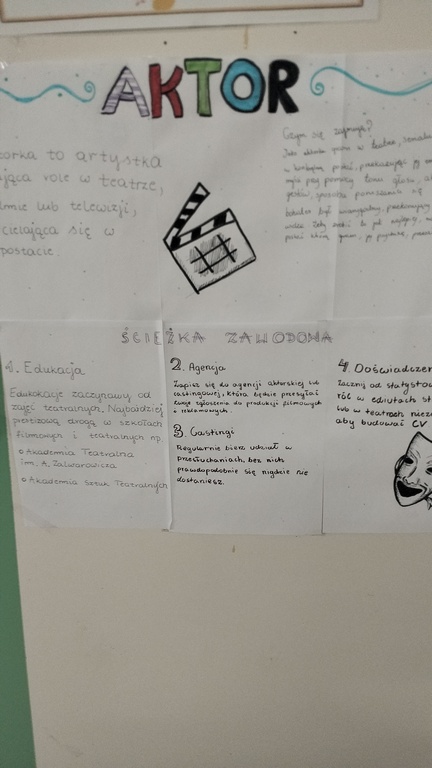 AKTOR
orka to artystka
jąca role w teatrze,
lmie lub telewizji,
cielająca się w
postacie.
Czym się zajmuje?
ŚCIEŻKA ZAWODOWA
1. Edukacja
Edukację zaczynamy od
zajęć teatralnych. Najbardziej
prestiżową drogą w szkołach
filmowych i teatralnych np.
o Akademia Teatralna
im. A. Zelwerowicza
o Akademia Sztuk Teatralnych
2. Agencja
Zapisz się do agencji aktorskiej lub
castingowej, która będzie przesyłać
twoje zgłoszenia do produkcji filmowych
i reklamowych.
3. Castingi
Regularnie bierz udział w
przesłuchaniach, bez nich
prawdopodobnie się nigdzie nie
dostaniesz.
4. Doświadczen
Zacznij od statystow
ról w etiutach st
lub w teatrach niez
aby budować CV